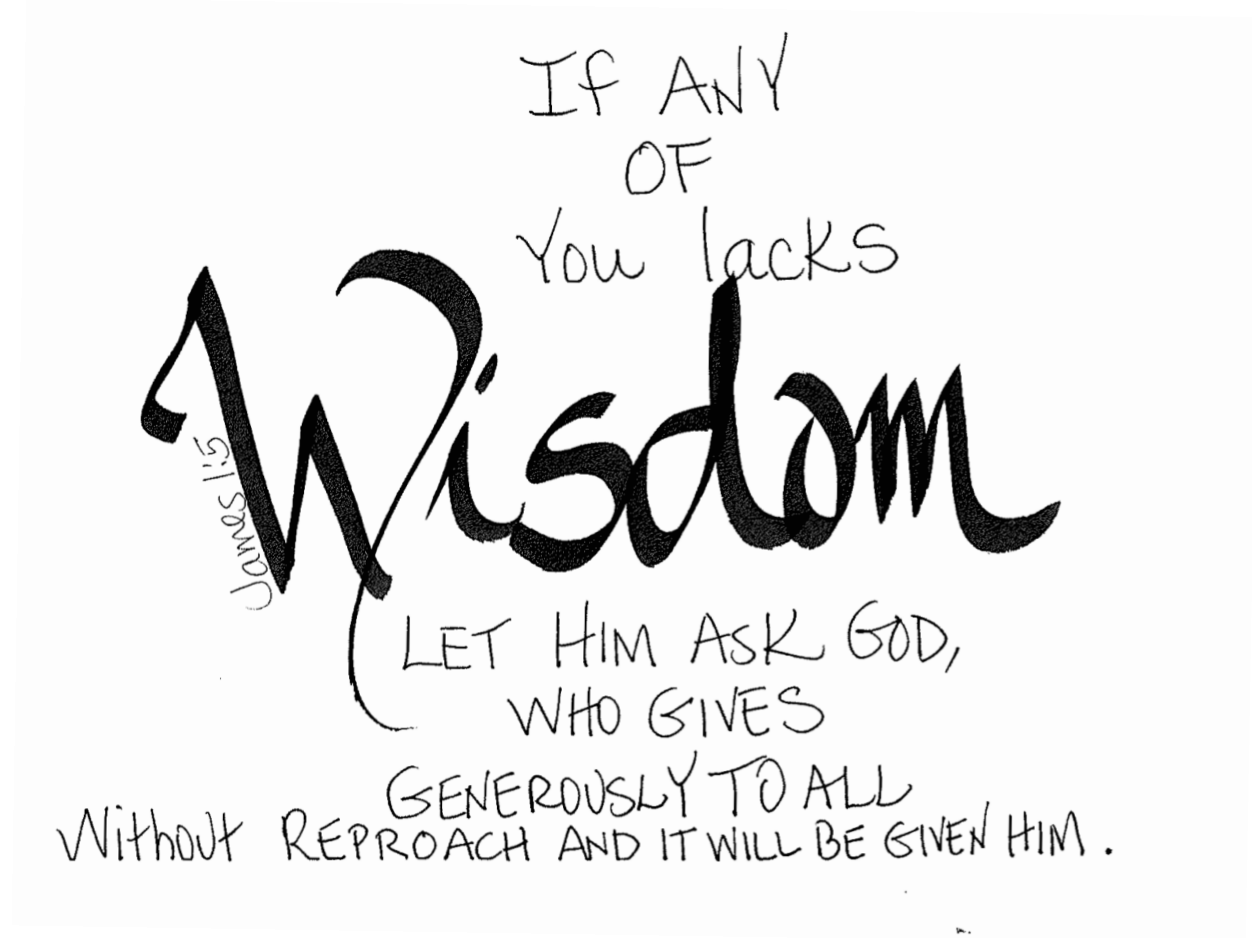 If ANY
OF
You lacks
Wisdom
James 1:5
LET HIM ASK GOD,
WHO GIVES
GENEROUSLY TO ALL
Without REPROACH AND IT WILL BE GIVEN HIM.